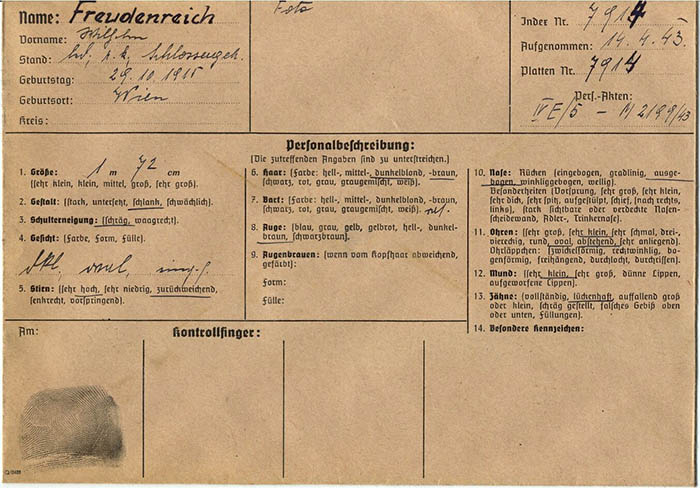 Name: Freudenreich
Vorname: Wilhelm
Stand: led, r. k.
Geburtstag: 29.10.1915
Geburtsort: Wien
Kreis:
Foto
Index Nr. 7914
Aufgenommen: 14.4.43.
Platten Nr. 7914
Pers.-Akten:
IV E/5 – 2199/43
Personalbeschreibung:
(Die zutreffenden Angaben sind zu unterstreichen.)
1. Größe: 1 m 72 cm
(sehr klein, klein, mittel, groß, sehr groß).
2. Gestalt: (stark, untersetzt, schlank, schwächlich).
3. Schulterneigung: (schräg, waagrecht).
4. Gesicht: (Farbe, Form, Fülle).
oval,
5. Stirn: (sehr hoch, sehr niedrig, zurückweichend,
senkrecht, vorspringend).
6. Haar: (Farbe: hell-, mittel-, dunkelblond, -braun,
schwarz, rot, grau, graugemischt, weiß).
7. Bart: (Farbe: hell-, mittel-, dunkelblond, -braun,
schwarz, rot, grau, graugemischt, weiß).
8. Auge: (blau, grau, gelb, gelbrot, hell-, dunkel-
braun, schwarzbraun).
9. Augenbrauen: (wenn vom Kopfhaar abweichend,
gefärbt):
Form:
Fülle:
10. Nase: Rücken (eingebogen, gradlinig, ausge-
bogen, winkliggebogen, wellig).
Besonderheiten (Vorsprung, sehr groß, sehr klein,
sehr dick, sehr spitz, aufgestülpt, schief, [nach rechts,
links], stark sichtbare oder verdeckte Nasen-
scheidewand, Adler-, Trinkernase).
11. Ohren: (sehr groß, sehr klein, sehr schmal, drei-,
viereckig, rund, oval, abstehend, sehr anliegend).
Ohrläppchen: (zwickelförmig, rechtwinklig, bo-
genförmig, freihängend, durchlocht, durchrissen).
12. Mund: (sehr klein, sehr groß, dünne Lippen,
aufgeworfene Lippen).
13. Zähne: (vollständig, lückenhaft, auffallend groß
oder klein, schräg gestellt, falsches Gebiß oben
oder unten, Füllungen).
14. Besondere Kennzeichen:
Am:
Kontrollfinger: